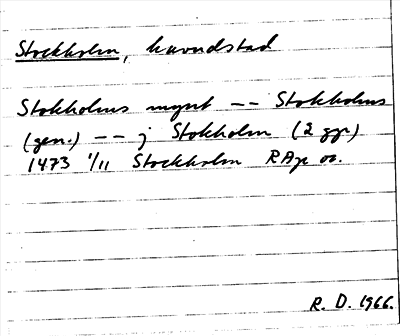 Stockholm, huvudstad
Stokholms mynt -- Stokholms
(gen.) -- j Stokholm (2 ggr)
1473 1/11 Stockholm RAp or.
R. D. 1966.